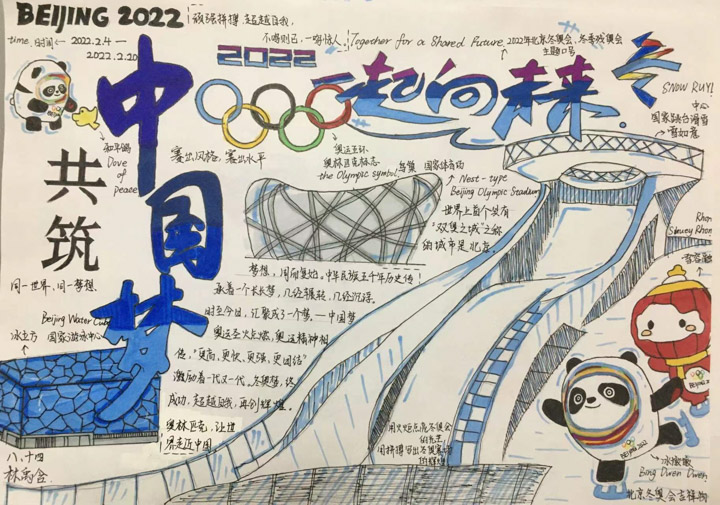 BEIJING 2022
顽强拼搏 超越自我,
不鸣则已,一鸣惊人.
Together for a Shared Future
2022年北京冬奥会、冬季残奥会
主题口号
time.时间 ← 2022.2.4 —
2022.2.20
2022
一起向未来.
SNOW RUYI
中心
国家跳台滑雪
雪如意
中国梦
共筑
和平鸽
Dove
of
peace
赛出风格,赛出水平
奥运五环
奥林匹克标志
the Olympic symbol
鸟巢 国家体育场
Nest-type
Beijing Olympic Stadium
世界上首个拥有
"双奥之城"之称
的城市是北京.
同一世界,同一梦想.
Beijing Water Cube
冰立方 国家游泳中心
梦想,周而复始,中华民族五千年历史传
承着一个长长梦,几经辗转,几经沉浮.
时至今日,汇聚成了一个梦——中国梦
奥运圣火点燃,奥运精神相
传,"更高、更快、更强、更团结"
激励着一代又一代。冬奥梦,终
成功,超越自我,再创辉煌。
奥林匹克,让世
界走近中国
用火炬点亮冬奥会
的光芒
用拼搏写出冬奥赛场
的辉煌
Rhon
Shuey Rhon
雪容融
BEIJING 2022
冰墩墩
Bing Dwen Dwen
北京冬奥会吉祥物
八、十四
林禹含